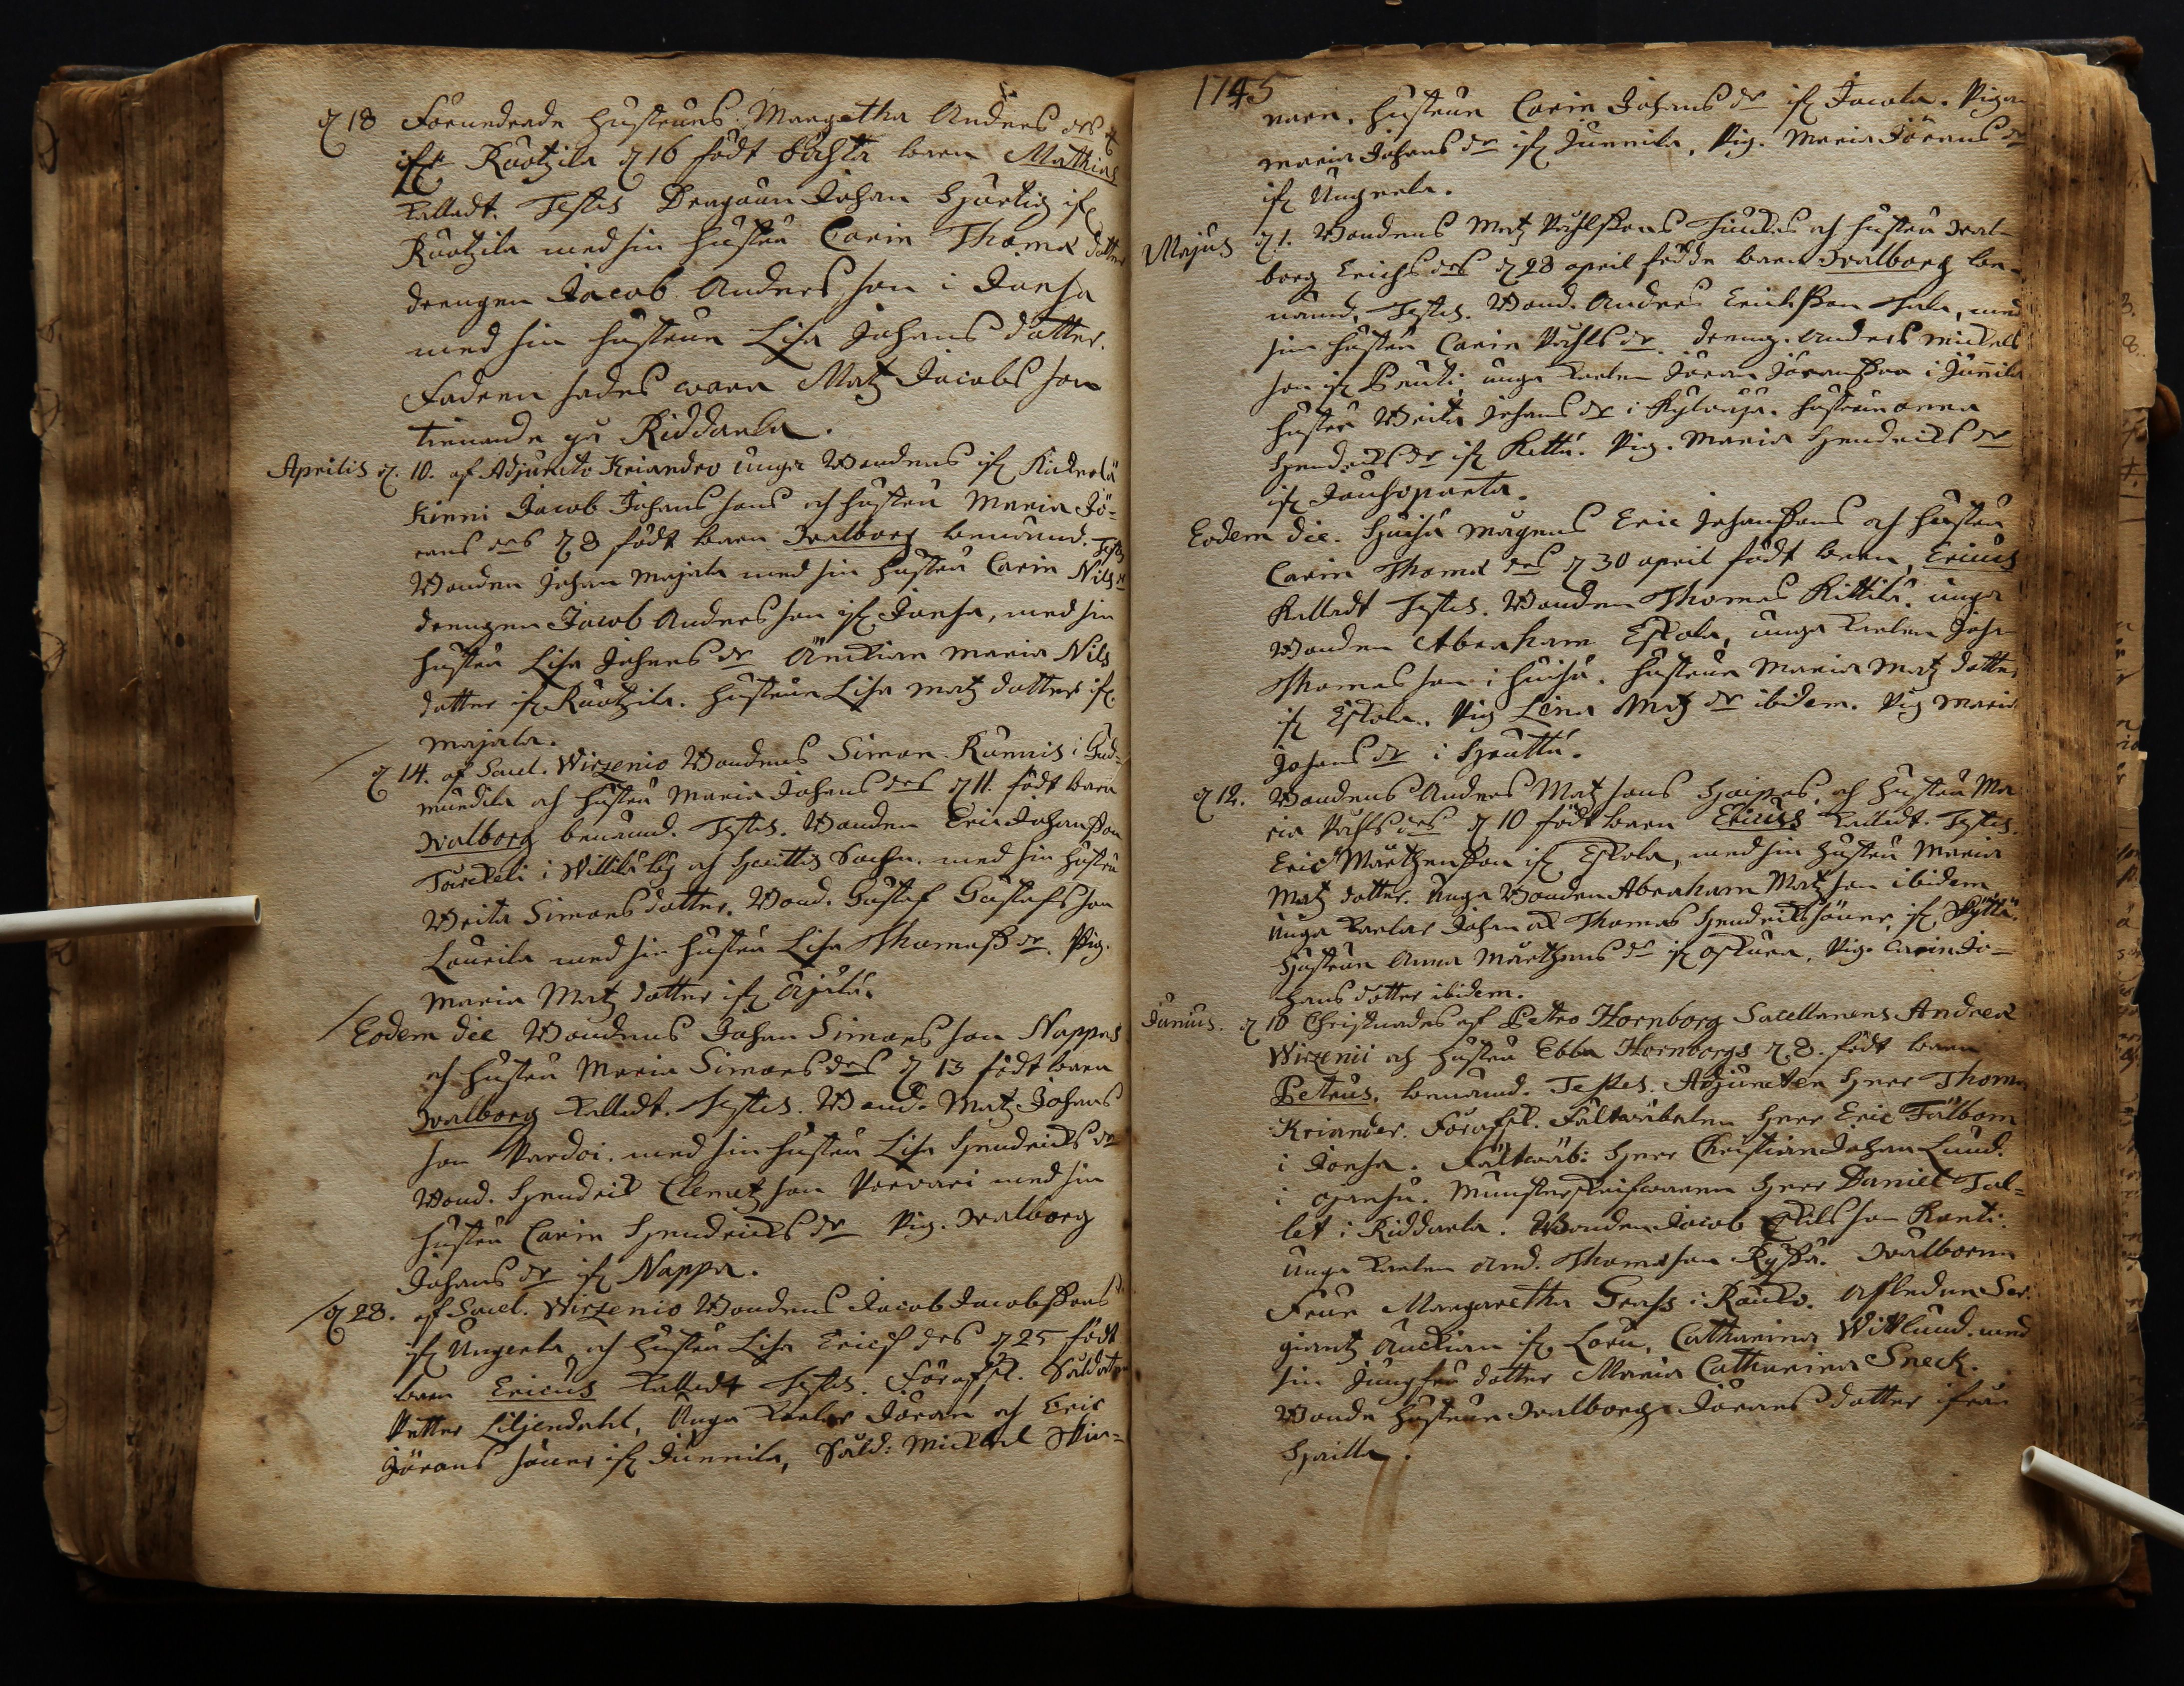 d 18 Förnedrade hustruns Margetha Anders drs
ifr Ruotzila d 16 födt oächta barn Mathias
kalladt. Testes Dragoun Johan Hjortig ifr
Ruotzila med sin hustru Carin Thomæ dotter
drengen Jacob Anders son i Jonsa
med sin hustrun Lisa Johans dotter.
Fadren sades wara Matz Jacobs son
tienande på Riddarla.
Aprilis d. 10. af Adjuncto Kriandro unga Bondens ifr
Kinni Jacob Johans sons och hustru Maria Jö-
rans drs d 8 födt barn Walborg benämnd. Test.
Bonden Johan Majala med sin hustru Carin Nils dr
drengen Jacob Anders son ifr Jonsa, med sin
hustru Lisa Johans dr Änckian Maria Nils
dotter ifr Ruotzila. Hustrun Lisa Matz dotter ifr
Majala.
d 14. af Sacel. Wirzenio Bondens Simon Kunnis i Gud-
mundila och hustru Maria Johans drs d 11. födt barn
Walborg benämnd. Testes. Bonden Eric Johansson
Torckeli i Willilä by och Huittis Sochn. med sin hustru
Beita Simons dotter. Bond. Gustaf Gustafs son
Lourila med sin hustru Lisa Thomæs dr. Pig.
Maria Matz dotter ifr Äijälä.
Eodem die Bondens Johan Simons son Nappas
och hustru Maria Simons drs d 13 födt barn
Walborg kalladt. Testes. Bond. Matz Johans
son Pardoi. med sin hustru Lisa Hendricks dr
Bond. Hendrick Clemetz son Porvari med sin
hustru Carin Hendricks dr Pig. Walborg
Johans dr ifr Nappa.
d 28. af Sacel. Wirzenio Bondens Jacob Jacobssons
ifr Ungerla och hustru Lisa Erichs drs d 25 födt
barn Ericus kalladt Testes. Soldaten
Petter Liljendahl, Unga Karlar Jöran och Eric
Jörans söner ifr Junnila, Sold: Mickael Win-
1745
narn. Hustrun Carin Johans dr ifr Jacola. Pigan
Maria Johans dr ifr Junnila, Pig. Maria Jörans dr
ifr Ungerla.
Majus d 1. Bondens Matz Påhlssons och hustru Wal-
borg Erichs drs d 28 april födde barn Walborg be-
nämnd, Testes. Bond. Anders Erichsson med
sin hustru Carin Påhls dr. dreng. Anders Mickels
son ifr Penti. unga Karlen Jöran Jöransson i Junnila
hustru Beita Johans dr i Kylänpä. hustrun Anna
Hendricks dr ifr Kettu. Pig. Maria Hendricks dr
ifr
Eodem die. Huhta Magens Eric Johanssons och hustru
Carin Thomæ drs d 30 april födt barn, Ericus
kalladt Testes. Bonden Thomas Kittilä. unga
Bonden Abraham Eskola, unga Karlen Joh.
Thomas son i Huhta. Hustrun Maria Matz dotter
ifr Eskola. Pig Lena Matz dr ibidem. Pig Maria
Johans dr i Houttu.
d 12. Bondens Anders Matz sons och hustru Ma
ria Påhls drs d 10 födt barn Ericus kalladt. Testes.
Eric Mårthensson ifr Eskola, med sin hustru Maria
Matz dotter. Unga Bonden Abraham Matz son ibidem
Unga Karlar Johan och Thomas Hendrichssöner ifr
Hustrun Anna Mårthens dr ifr Pig. Carin Jo-
hans dotter ibidem.
Junius. d 10 Christnades af Petro Hornborg Sacellanens Andreæ
Wirzenii och hustru Ebba Hornborgs d 8. födt barn
Petrus. benämnd. Testes. Adjuncten Herr Thomas
Kriander. Fältwäbelen Herr Eric Fälbom
i Jonsa. Fältwäb: Herr Christian Johan Lund.
i Munsterskrifwaren Herr Daniel Tal-
let i Riddarla. Bonden Jacob Eskils son Ranti.
Unga Karlen And. Thomæ son Ryssä. Wälborna
Frun Margaretha Grass i Räucko. Afledne Ser-
giantz Änckian ifr Loru, Catharina Wittlund. med
sin Jungfru dotter Maria Catharina Sneck.
Bonde hustrun Walborg Jörans dotter ifrån